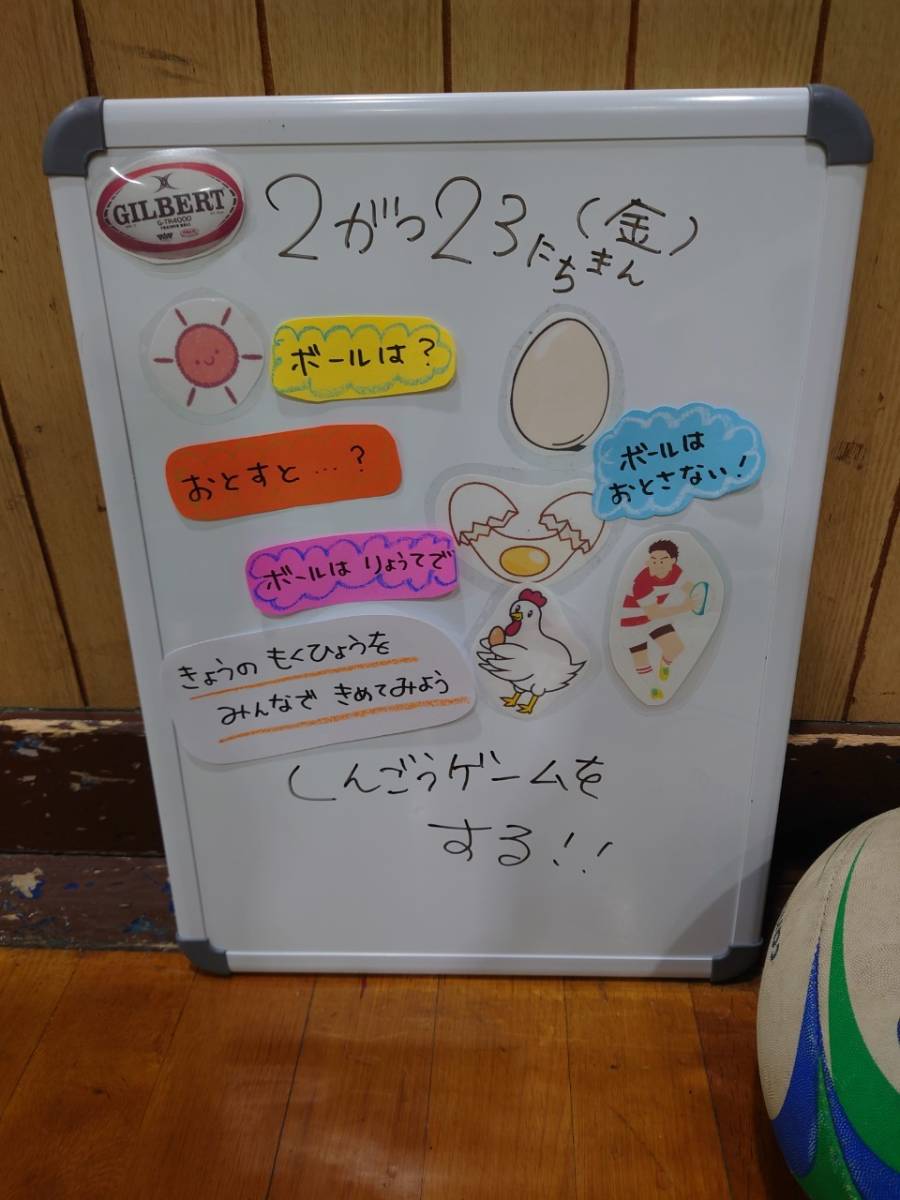 GILBERT
G-TR4000
TRAINER BALL
2がつ23にち(金)
きん
ボールは?
ボールは
おとさない!
おとすと…?
ボールは りょうてで
きょうの もくひょうを
みんなで きめてみよう
しんごうゲームを
する!!